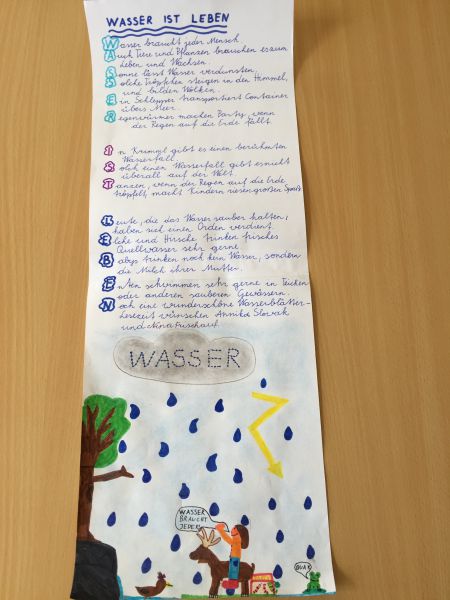 WASSER IST LEBEN
Wasser braucht jeder Mensch.
Auch Tiere und Pflanzen brauchen es zum
Leben und Wachsen.
Sonne lässt Wasser verdunsten,
solche Tröpfchen steigen in den Himmel,
und bilden Wolken.
Ein Schlepper transportiert Container
übers Meer.
Regenwürmer machen Party, wenn
der Regen auf die Erde fällt.
In Krimml gibt es einen berühmten
Wasserfall.
Solch einen Wasserfall gibt es nicht
überall auf der Welt.
Tanzen, wenn der Regen auf die Erde
tröpfelt, macht Kindern riesengroßen Spaß.
Leute, die das Wasser sauber halten,
haben sich einen Orden verdient.
Elche und Hirsche trinken frisches
Quellwasser sehr gerne.
Babys trinken noch kein Wasser, sondern
die Milch ihrer Mutter.
Enten schwimmen sehr gerne in Teichen
oder anderen sauberen Gewässern.
Noch eine wunderschöne Wasserblätter-
lesezeit wünschen Annika Slovak
und Nina Puschauf.
WASSER
WASSER
BRAUCHT
JEDER!
QUAK